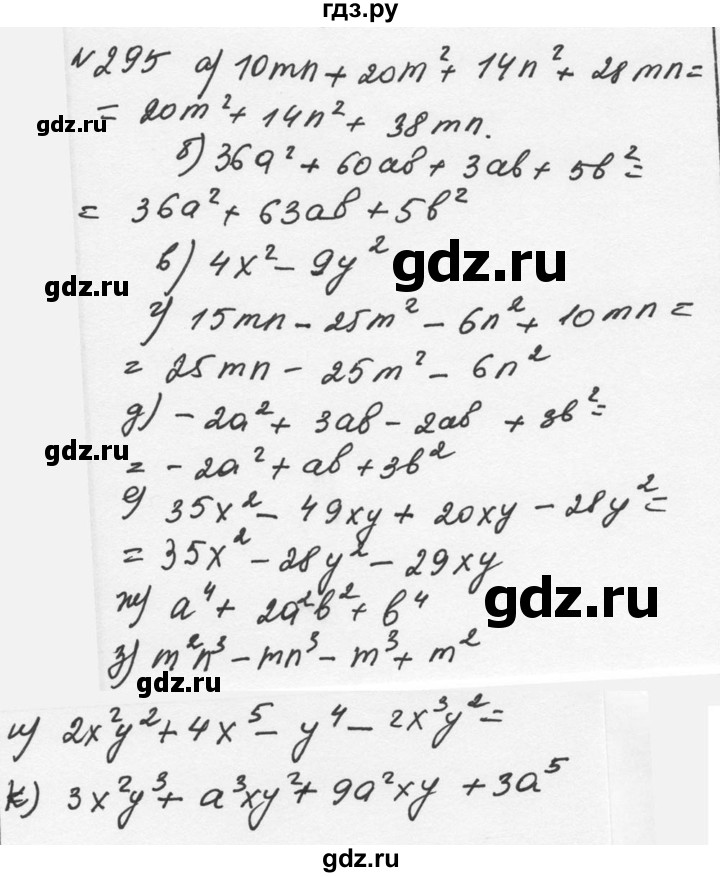 гдз.ру
№295 а) 10mn + 20m² + 14n² + 28mn =
= 20m² + 14n² + 38mn.
gdz.ru
б) 36a² + 60ab + 3ab + 5b² =
= 36a² + 63ab + 5b²
в) 4x² - 9y²
gdz.ru
gdz.ru
г) 15mn - 25m² - 6n² + 10mn =
= 25mn - 25m² - 6n²
д) -2a² + 3ab - 2ab + 3b² =
gdz.ru
= -2a² + ab + 3b²
е) 35x² - 49xy + 20xy - 28y² =
= 35x² - 28y² - 29xy
ж) a⁴ + 2a²b² + b⁴
gdz.ru
з) m²n³ - mn³ - m³ + m²
gdz.ru
и) 2x²y² + 4x⁵ - y⁴ - 2x³y² =
к) 3x²y³ + a³xy² + 9a²xy + 3a⁵
gdz.ru